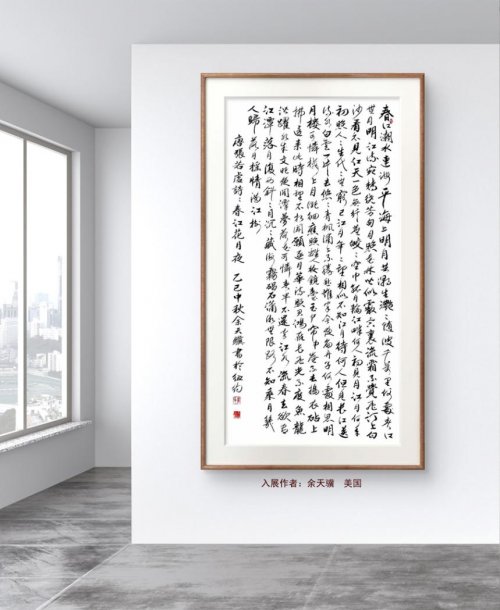 春江潮水連海平海上明月共潮生灩灩隨波千万里何處春江
月明江流宛轉繞芳甸月照花林皆似霰空裏流霜不覺飛汀上白
沙看不見江天一色無纖塵皎皎空中孤月輪江畔何人初見月江月何年
初照人人生代代無窮已江月年年望相似不知江月待何人但見長江送
流水白雲一片去悠悠青楓浦上不勝愁誰家今夜扁舟子何處相思明
月樓可憐樓上月徘徊應照離人妝鏡臺玉户簾中卷不去搗衣砧上
拂還來此時相望不相聞願逐月華流照君鴻雁長飛光不度魚龍
潛躍水成文昨夜閒潭夢落花可憐春半不還家江水流春去欲盡
江潭落月復西斜斜月沉沉藏海霧碣石瀟湘無限路不知乘月幾
人歸落月搖情滿江樹
唐張若虛詩春江花月夜 乙巳中秋余天驥書於紐約
入展作者：余天骥 美国